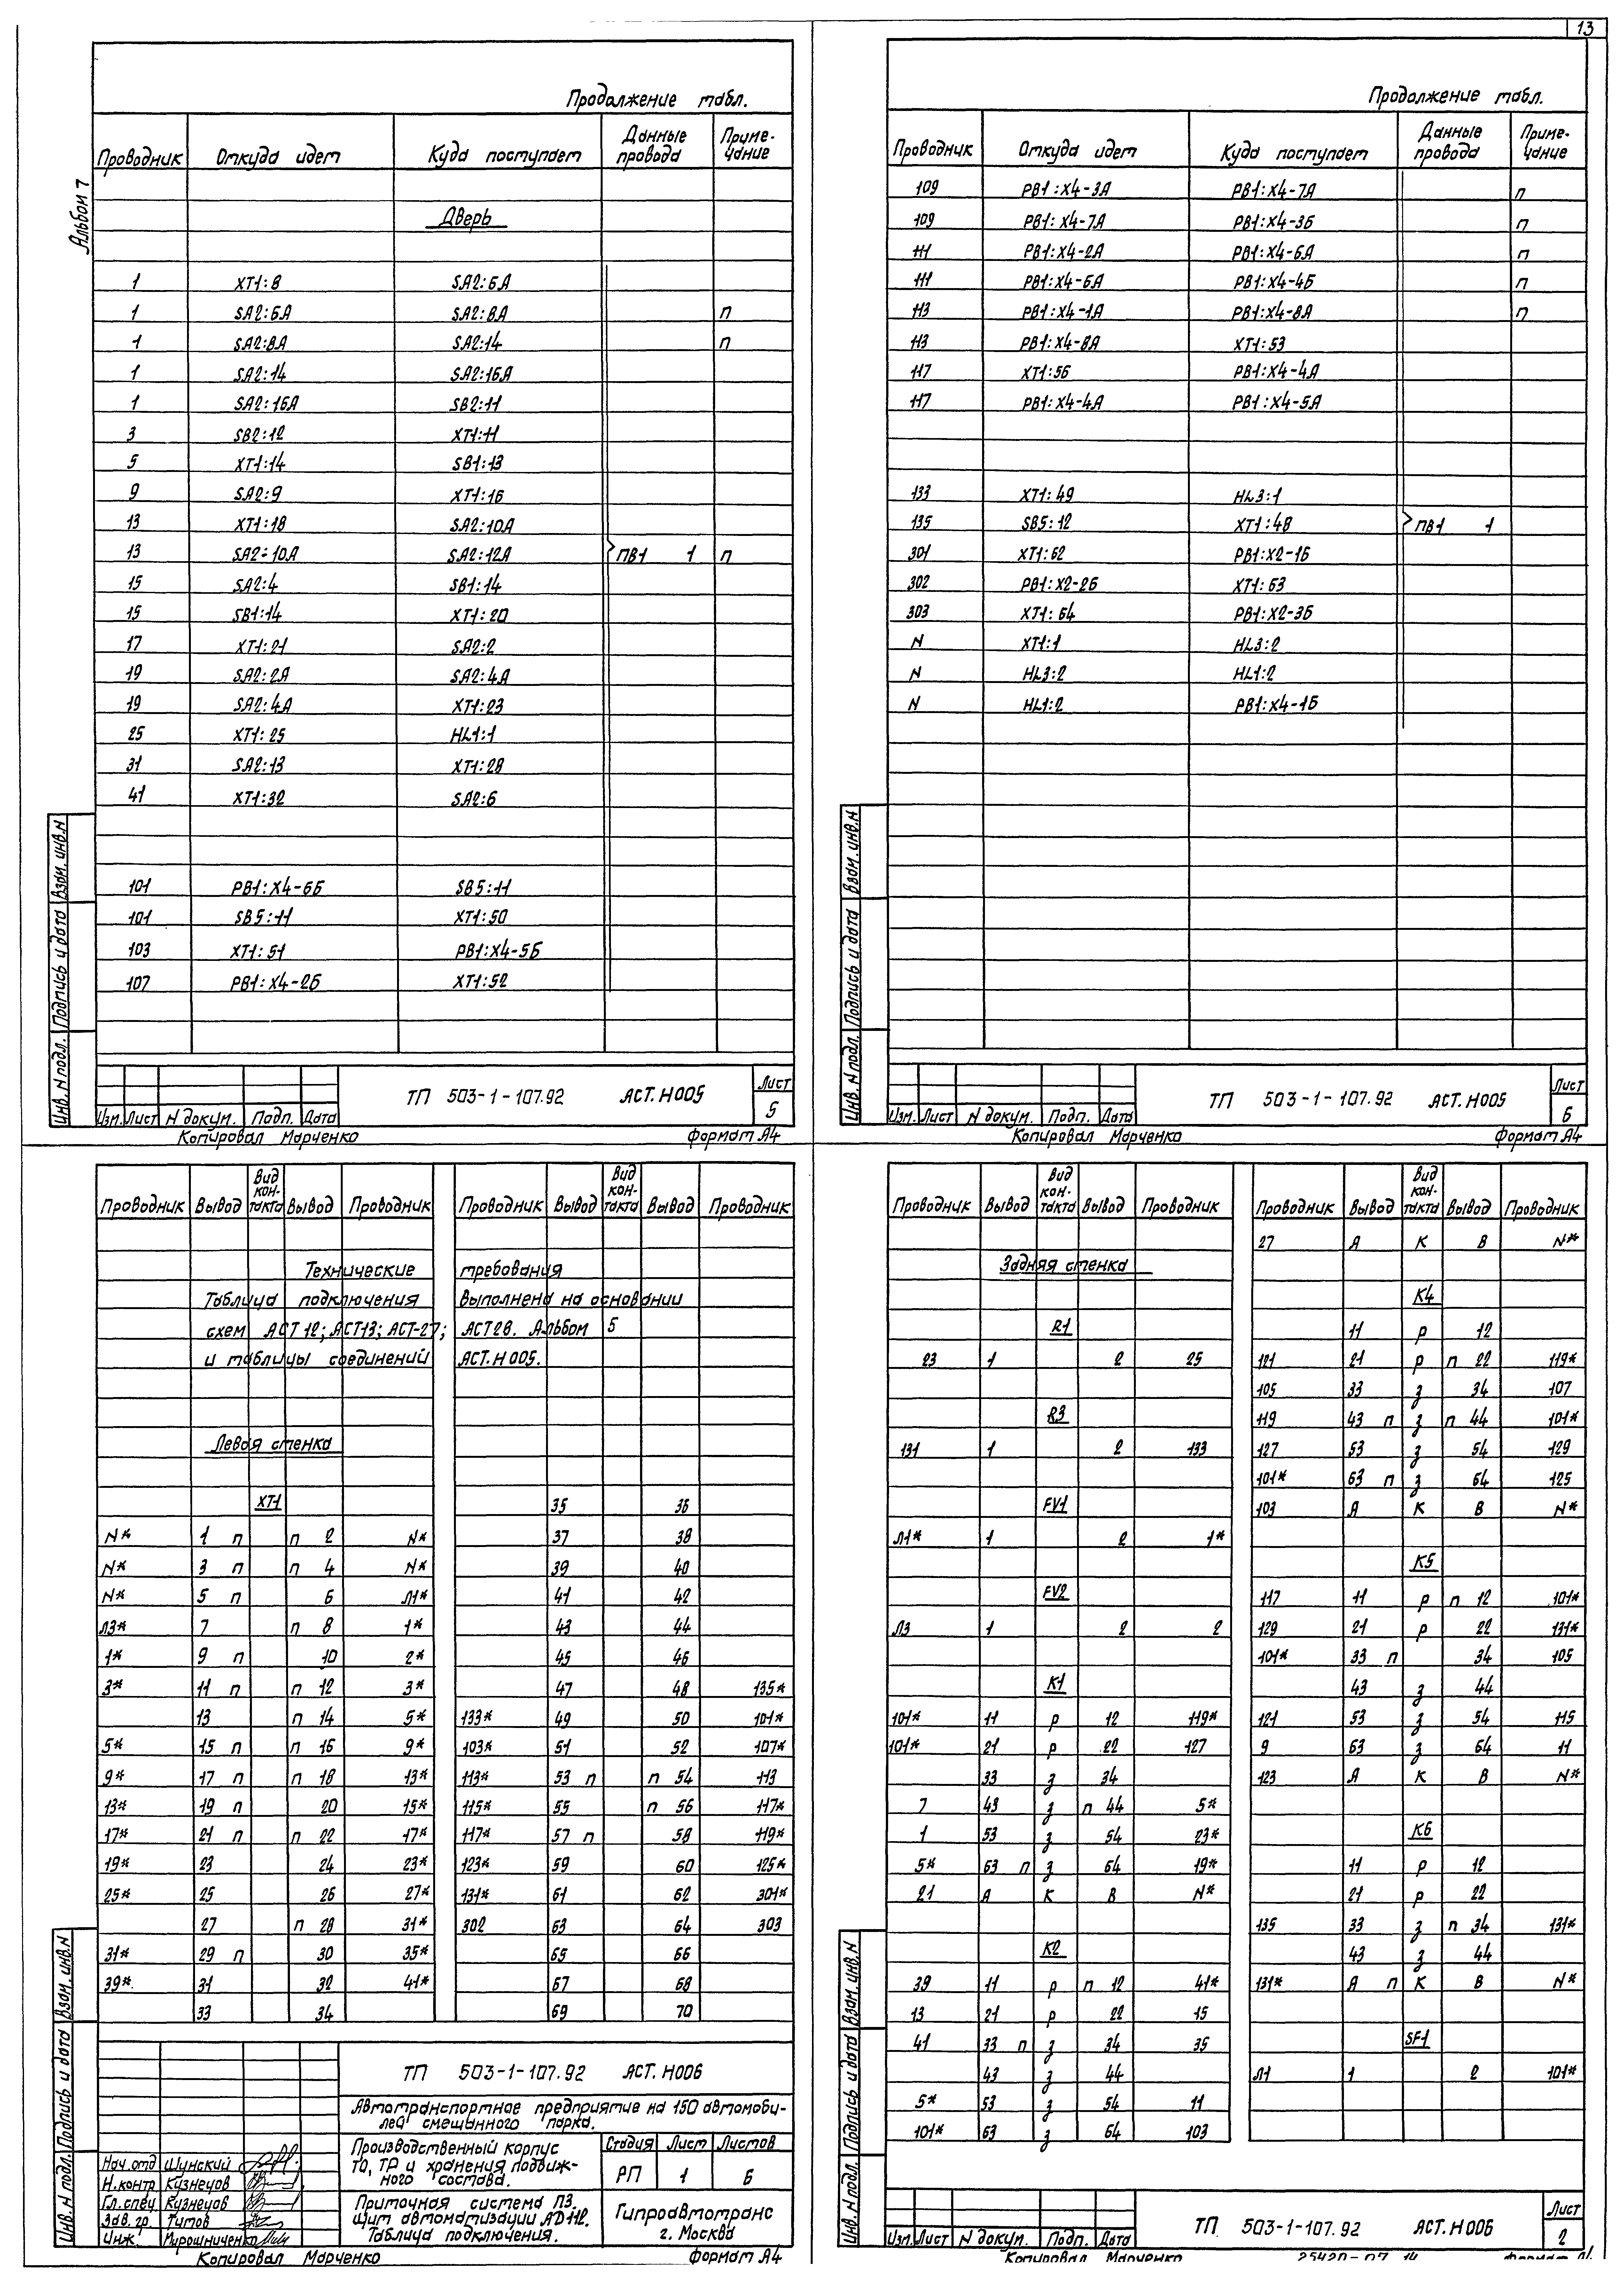 13
Альбом 7
Продолжение табл.
Проводник Откуда идет Куда поступает Данные провода Примечание
Дверь
1 XT1:8 SA2:6A
1 SA2:6A SA2:8A п
1 SA2:8A SA2:14 п
1 SA2:14 SA2:16A
1 SA2:16A SB2:11
3 SB2:12 XT1:11
5 XT1:14 SB1:13
9 SA2:9 XT1:16
13 XT1:18 SA2:10A
13 SA2:10A SA2:12A ПВ1 1 п
15 SA2:4 SB1:14
15 SB1:14 XT1:20
17 XT1:21 SA2:2
19 SA2:2A SA2:4A
19 SA2:4A XT1:23
25 XT1:25 HL1:1
31 SA2:13 XT1:28
41 XT1:32 SA2:6
101 PB1:X4-6Б SB5:11
101 SB5:11 XT1:50
103 XT1:51 PB1:X4-5Б
107 PB1:X4-2Б XT1:52
Инв. N подл. Подпись и дата Взам. инв. N
Изм. Лист N докум. Подп. Дата
ТП 503-1-107.92 АСТ.Н005
Лист
5
Копировал Марченко Формат А4
Продолжение табл.
Проводник Откуда идет Куда поступает Данные провода Примечание
109 PB1:X4-3A PB1:X4-7A п
109 PB1:X4-7A PB1:X4-3Б п
111 PB1:X4-2A PB1:X4-6A п
111 PB1:X4-6A PB1:X4-4Б п
113 PB1:X4-1A PB1:X4-8A п
113 PB1:X4-8A XT1:53
117 XT1:56 PB1:X4-4A
117 PB1:X4-4A PB1:X4-5A
133 XT1:49 HL3:1
135 SB5:12 XT1:48 ПВ1 1
301 XT1:62 PB1:X2-1Б
302 PB1:X2-2Б XT1:63
303 XT1:64 PB1:X2-3Б
N XT1:1 HL3:2
N HL3:2 HL1:2
N HL1:2 PB1:X4-1Б
Инв. N подл. Подпись и дата Взам. инв. N
Изм. Лист N докум. Подп. Дата
ТП 503-1-107.92 АСТ.Н005
Лист
6
Копировал Марченко Формат А4
Проводник Вывод Вид контакта Вывод Проводник Проводник Вывод Вид контакта Вывод Проводник
Технические требования
Таблица подключения выполнена на основании
схем АСТ12; АСТ13; АСТ-27; АСТ28. Альбом 5
и таблицы соединений АСТ.Н005.
Левая стенка
XT1 35 36
N* 1 п п 2 N* 37 38
N* 3 п п 4 N* 39 40
N* 5 п 6 Л1* 41 42
Л3* 7 п 8 1* 43 44
1* 9 п 10 2* 45 46
3* 11 п п 12 3* 47 48 135*
13 п 14 5* 133* 49 50 101*
5* 15 п п 16 9* 103* 51 52 107*
9* 17 п п 18 13* 113* 53 п п 54 113
13* 19 п 20 15* 115* 55 п 56 117*
17* 21 п п 22 17* 117* 57 п 58 119*
19* 23 24 23* 123* 59 60 125*
25* 25 26 27* 131* 61 62 301*
27 п 28 31* 302 63 64 303
31* 29 п 30 35* 65 66
39* 31 32 41* 67 68
33 34 69 70
Инв. N подл. Подпись и дата Взам. инв. N
ТП 503-1-107.92 АСТ.Н006
Автотранспортное предприятие на 150 автомоби-
лей смешанного парка.
Производственный корпус
ТО, ТР и хранения подвиж-
ного состава.
Стадия Лист Листов
РП 1 6
Приточная система П3.
Щит автоматизации АД112.
Таблица подключения.
Гипроавтотранс
г. Москва
Нач.отд Шунский
Н.контр. Кузнецов
Гл.спец. Кузнецов
Зав. гр. Титов
Инж. Мирошниченко
Копировал Марченко Формат А4
Проводник Вывод Вид контакта Вывод Проводник
Задняя стенка
R1
23 1 2 25
R3
131 1 2 133
FV1
Л1* 1 2 1*
FV2
Л3 1 2 2
K1
101* 11 р 12 119*
101* 21 р 22 127
33 з 34
7 43 з п 44 5*
1 53 з 54 23*
5* 63 п з 64 19*
21 А К В N*
K2
39 11 р п 12 41*
13 21 р 22 15
41 33 п з 34 35
43 з 44
5* 53 з 54 11
101* 63 з 64 103
Проводник Вывод Вид контакта Вывод Проводник
27 А К В N*
K4
11 р 12
121 21 р п 22 119*
105 33 з 34 107
119 43 п з п 44 101*
127 53 з 54 129
101* 63 п з 64 125
103 А К В N*
K5
117 11 р п 12 101*
129 21 р 22 131*
101* 33 п 34 105
43 з 44
121 53 з 54 115
9 63 з 64 11
123 А К В N*
K6
11 р 12
21 р 22
135 33 з п 34 131*
43 з 44
131* А п К В N*
SF1
Л1 1 2 101*
Инв. N подл. Подпись и дата Взам. инв. N
Изм. Лист N докум. Подп. Дата
ТП 503-1-107.92 АСТ.Н006
Лист
2
Копировал Марченко 25420-07 14 Формат А4